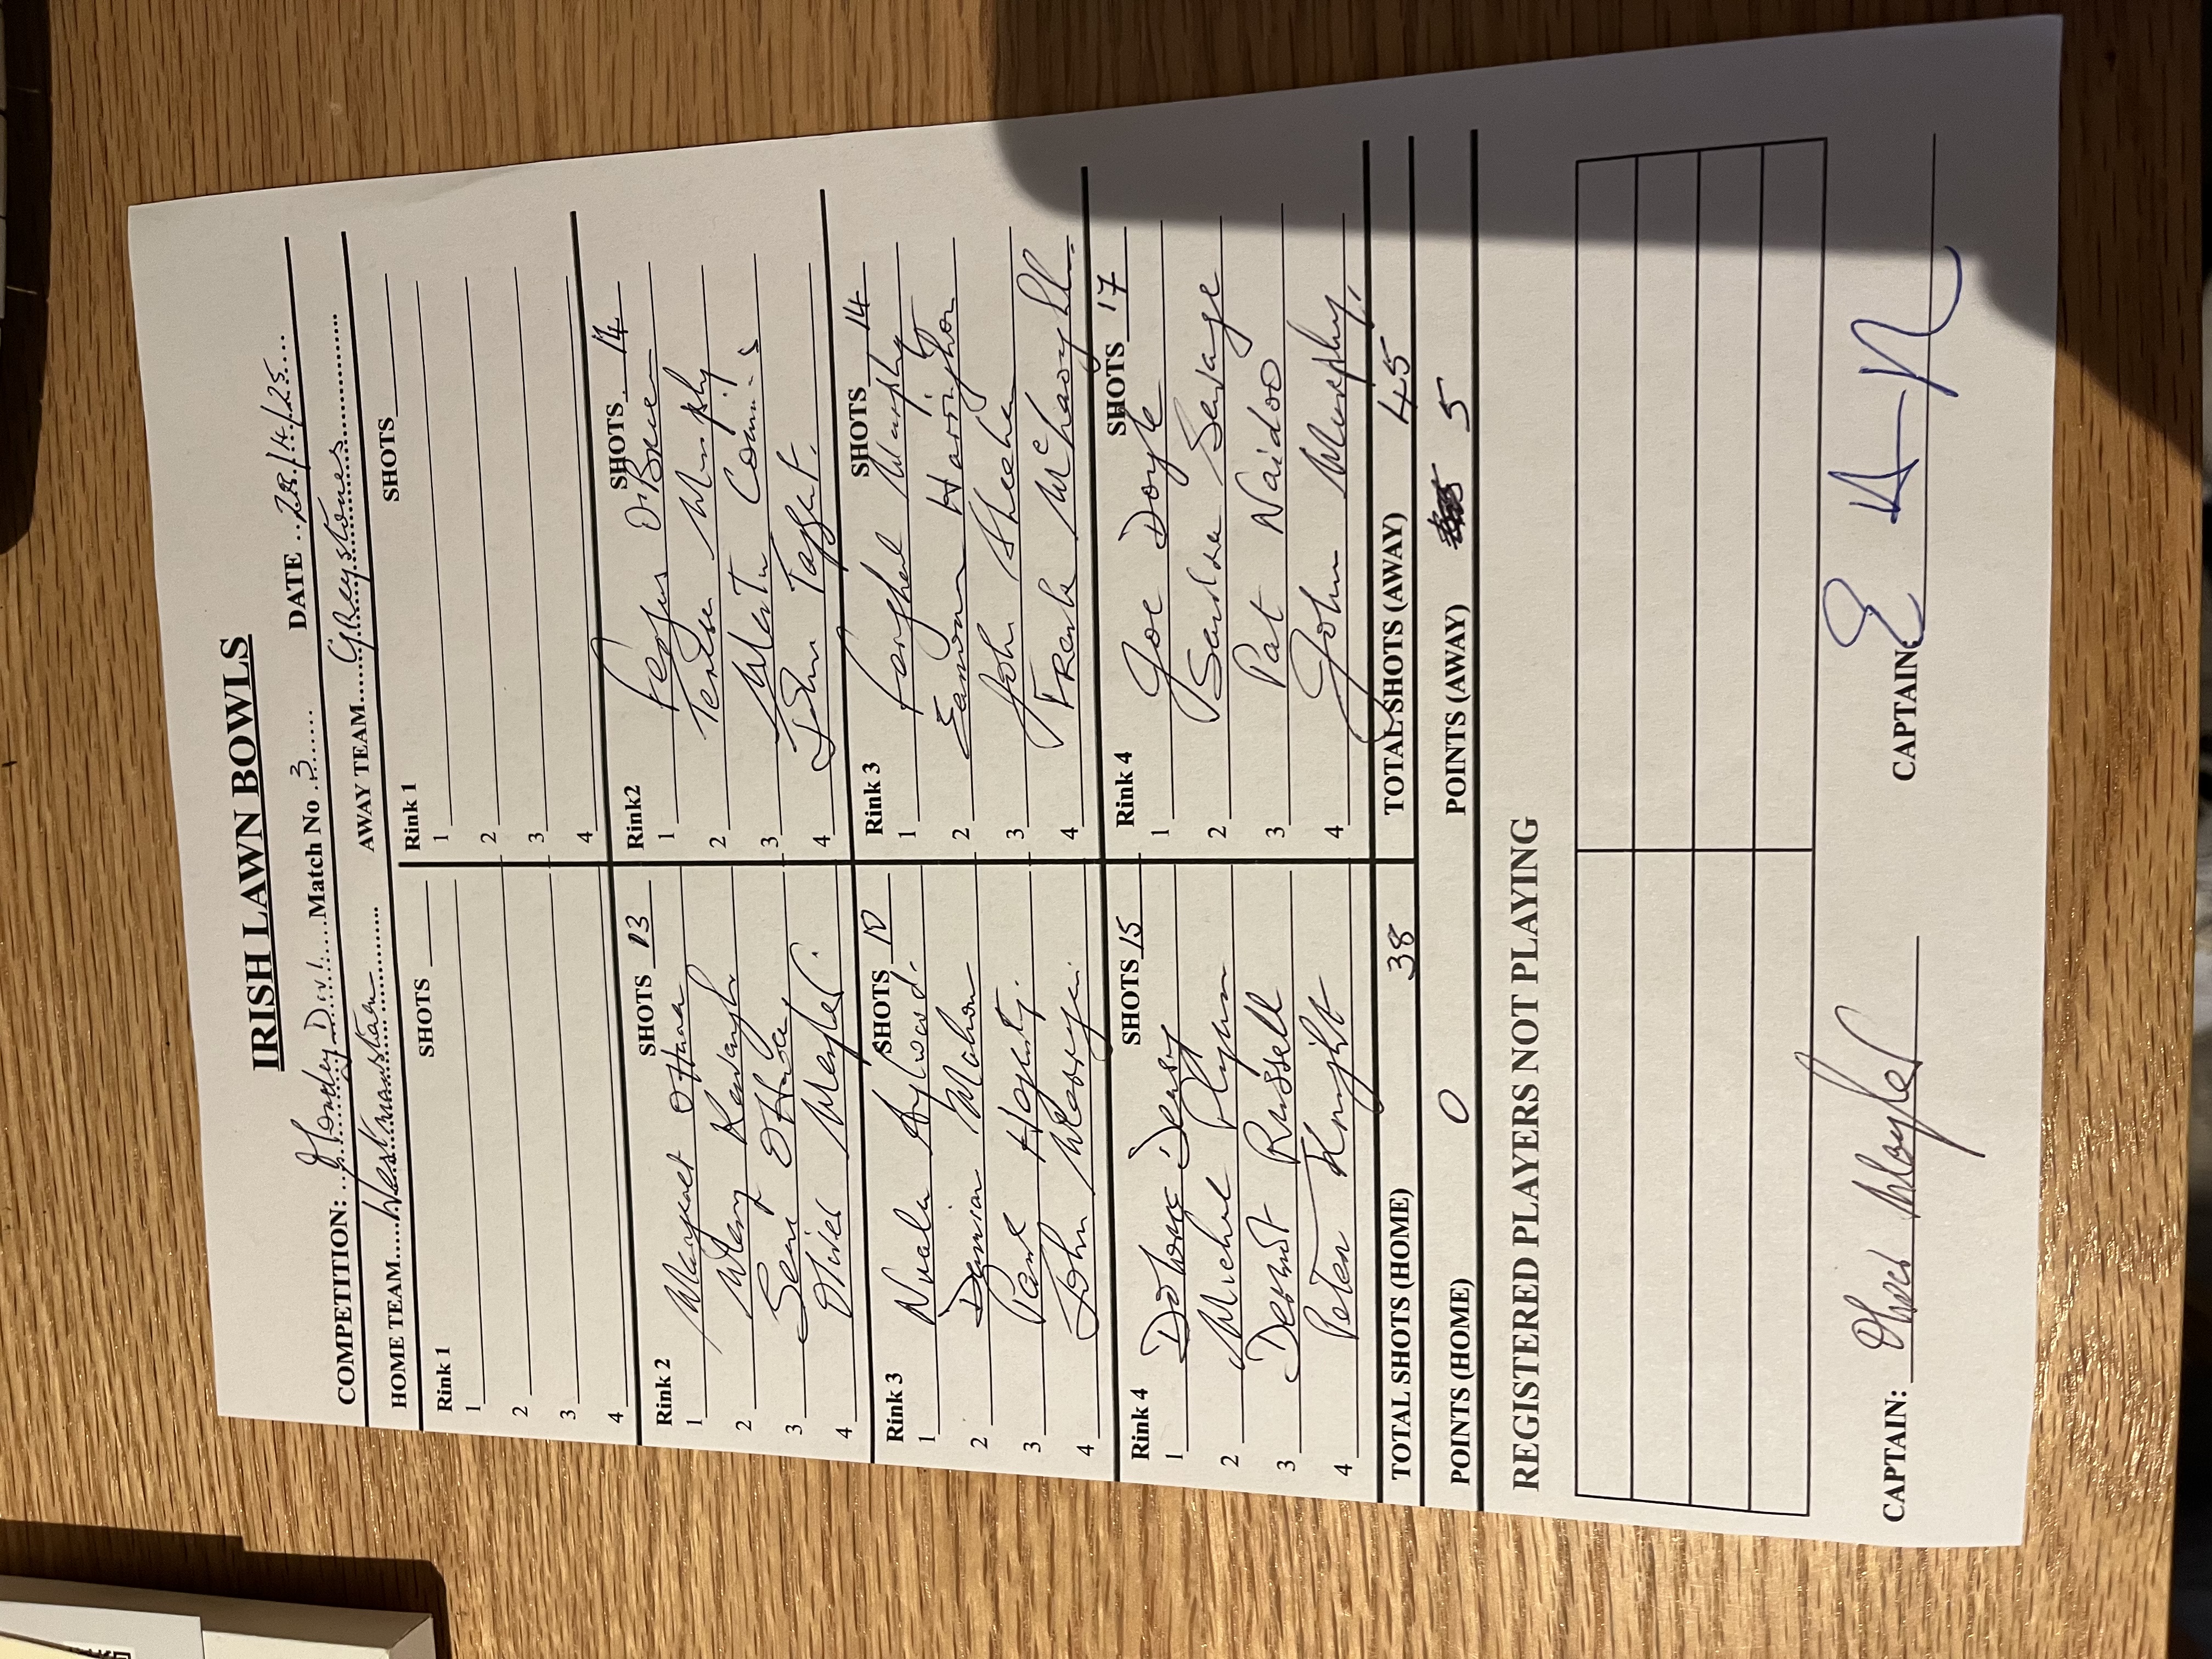 IRISH LAWN BOWLS
COMPETITION: Monday Div 1 Match No 3 DATE 28/4/25
HOME TEAM Westmanstown AWAY TEAM Greystones
Rink 1 SHOTS
1
2
3
4
Rink 2 SHOTS 13
1 Margaret O'Hara
2 Mary Kavanagh
3
4 Oliver Meyler
Rink 3 SHOTS 10
1 Nuala Aylward
2 Damian Mahon
3 Paul Hegarty
4 John
Rink 4 SHOTS 15
1
2 Michael Flynn
3 Dermot Russell
4 Peter Knight
TOTAL SHOTS (HOME) 38
POINTS (HOME) 0
Rink 1 SHOTS
1
2
3
4
Rink2 SHOTS 14
1 Fergus O'Brien
2 Murphy
3 Martin
4 John Taggart
Rink 3 SHOTS 14
1 Murphy
2 Eamonn Harrington
3 John Sheehan
4 Frank
Rink 4 SHOTS 17
1 Joe Doyle
2 Sandra Savage
3 Pat Naidoo
4 John Murphy
TOTAL SHOTS (AWAY) 45
POINTS (AWAY) 5
REGISTERED PLAYERS NOT PLAYING
CAPTAIN: Oliver Meyler CAPTAIN: